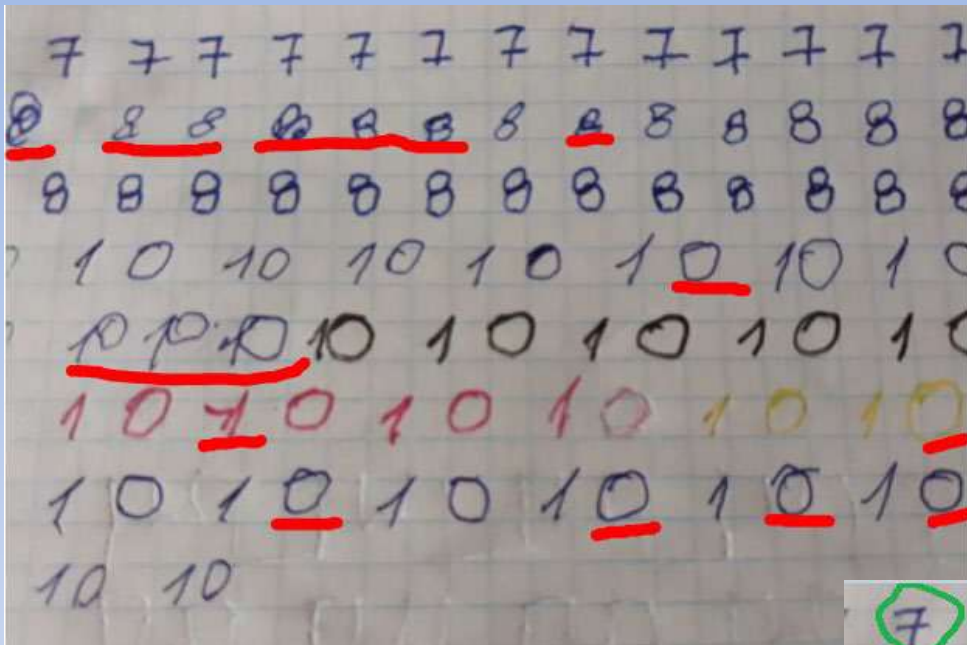 7 7 7 7 7 7 7 7 7 7 7 7 7
8 8 8 8 8 8 8 8 8 8 8 8 8
8 8 8 8 8 8 8 8 8 8 8 8 8
10 10 10 10 10 10 10
10 10 10 10 10 10 10 10
10 10 10 10 10 10
10 10 10 10 10 10
10 10
7